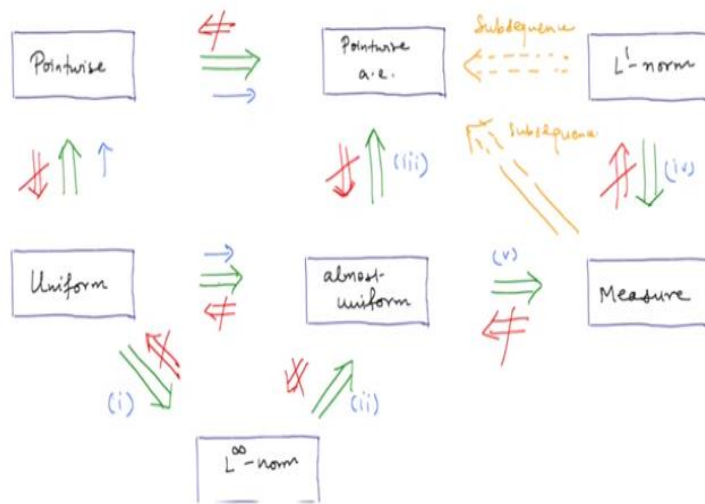 Pointwise
Pointwise
a.e.
Subsequence
L¹-norm
Subsequence
(iii)
(iv)
Uniform
almost-
uniform
(v)
Measure
(i)
(ii)
L∞-norm